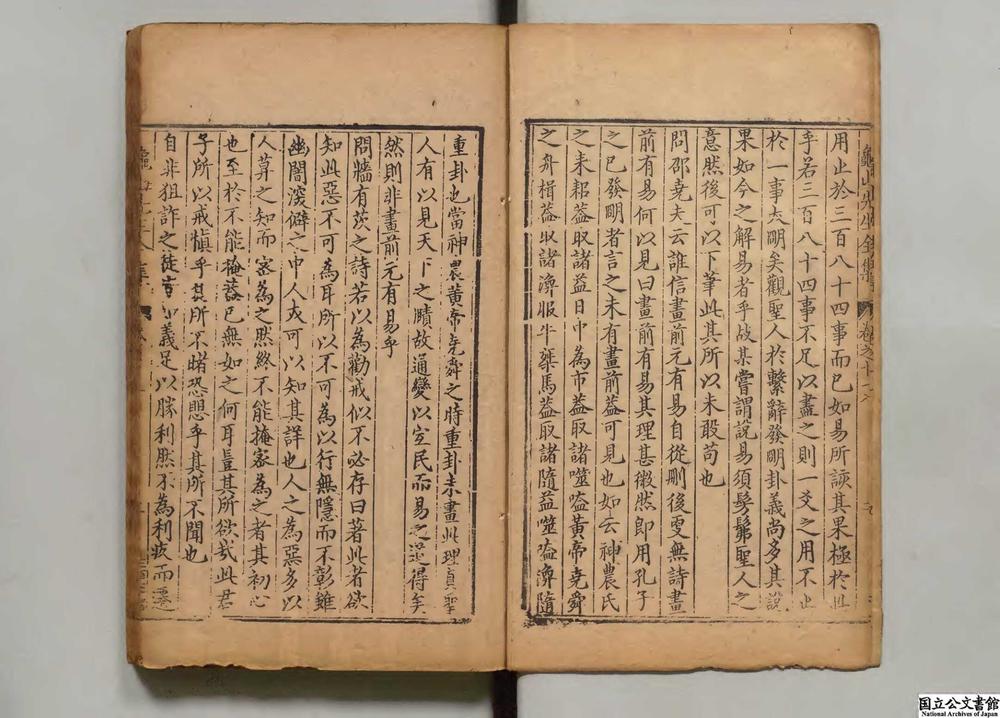 用止於三百八十四事而已如易所該其果極於此
乎若三百八十四事不足以盡之則一爻之用不止
於一事亦明矣觀聖人於繫辭發明卦義尚多其說
果如今之解易者乎故某嘗謂說易須髣髴聖人之
意然後可以下筆此其所以未敢苟也
問邵堯夫云誰信畫前元有易自從刪後更無詩畫
前有易何以見曰畫前有易其理甚微然即用孔子
之已發明者言之未有畫前蓋可見也如云神農氏
之耒耜蓋取諸益日中為市蓋取諸噬嗑黃帝堯舜
之舟楫蓋取諸渙服牛乘馬蓋取諸隨益噬嗑渙隨
重卦也當神農黃帝堯舜之時重卦未畫此理真聖
人有以見天下之賾故通變以宜民而易之道得矣
然則非畫前元有易乎
問牆有茨之詩若以為勸戒似不必存曰著此者欲
知此惡不可為耳所以不可為以行無隱而不彰雖
幽闇深僻之中人亦可以知其詳也人之為惡多以
人莫之知而密為之然終不能掩密為之者其初心
也至於不能掩蓋已無如之何耳豈其所欲哉此君
子所以戒慎乎其所不睹恐懼乎其所不聞也
自非狙詐之徒皆知義足以勝利然不為利疚而遷
龜山先生全集
国立公文書館
National Archives of Japan